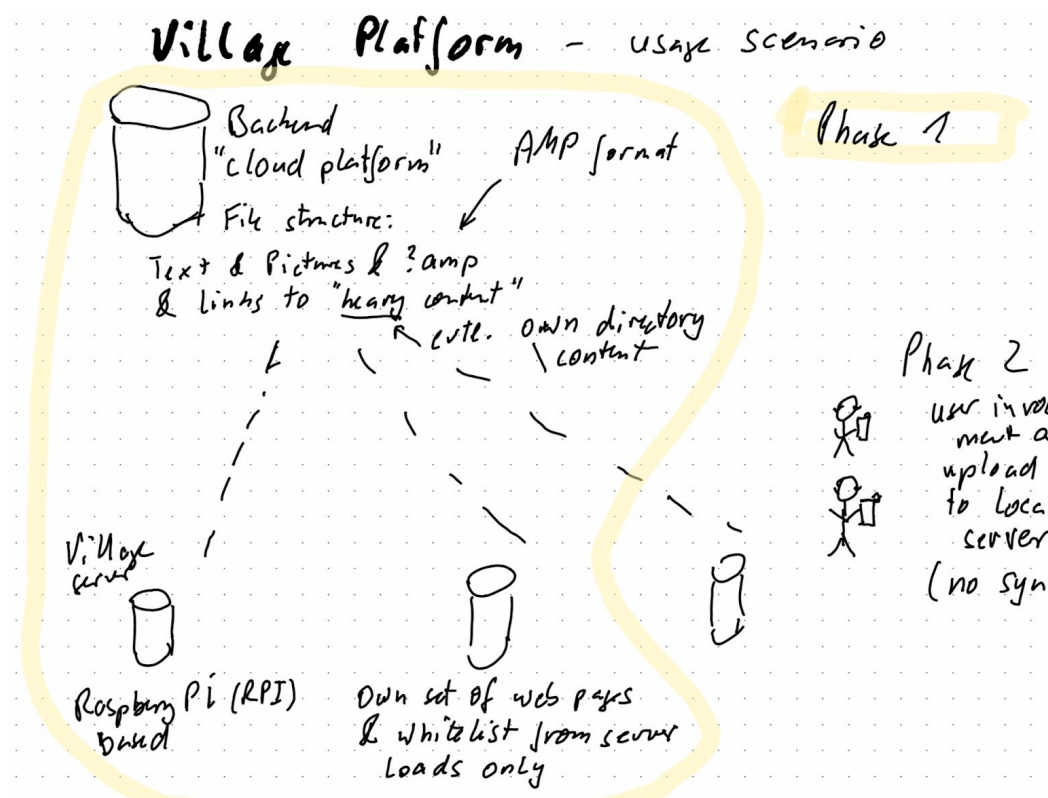 Village Platform - usage scenario
Backend
"cloud platform"
AMP format
Phase 1
File structure:
Text & Pictures & ?amp
& links to "heavy content"
own directory
content
Phase 2
user invol
ment a
upload
to Loca
server
(no syn
Village
server
Raspberry Pi (RPI)
based
Own set of web pages
& whitelist from server
loads only